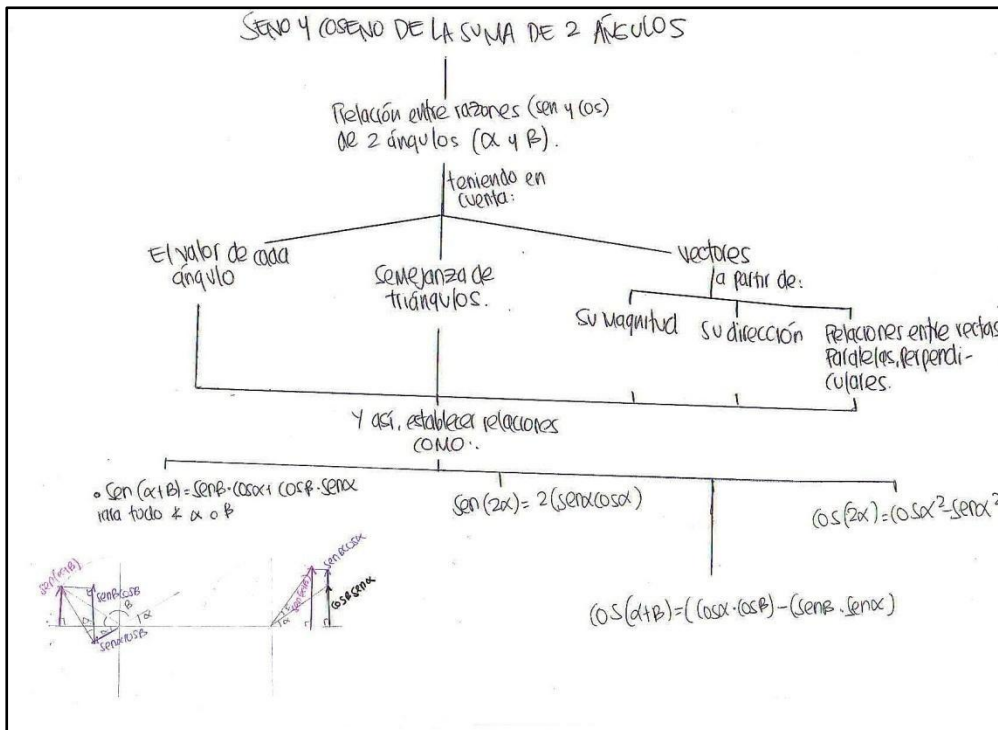 SENO Y COSENO DE LA SUMA DE 2 ÁNGULOS
Relación entre razones (sen y cos)
de 2 ángulos (α y β).
teniendo en
cuenta:
El valor de cada
ángulo
Semejanza de
triángulos.
vectores
a partir de:
Su Magnitud
Su dirección
Relaciones entre rectas
Paralelas, Perpendi-
culares.
Y así, establecer relaciones
COMO:.
• Sen(α+β)=senβ·cosα+cosβ·senα
para todo ∡ α o β
Sen(2α)= 2(senαcosα)
Cos(2α)=Cosα²-senα²
Cos(α+β)=((cosα·cosβ)-(senβ·senα)
sen(α+β)
senβcosβ
β
α
senαcosβ
sen(α+β)
senβcosα
cosβsenα
α